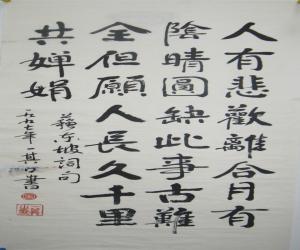 人有悲歡離合月有
陰晴圖缺此事古難
全但願人長久千里
共嬋娟
蘇東坡詞句
一九九七年